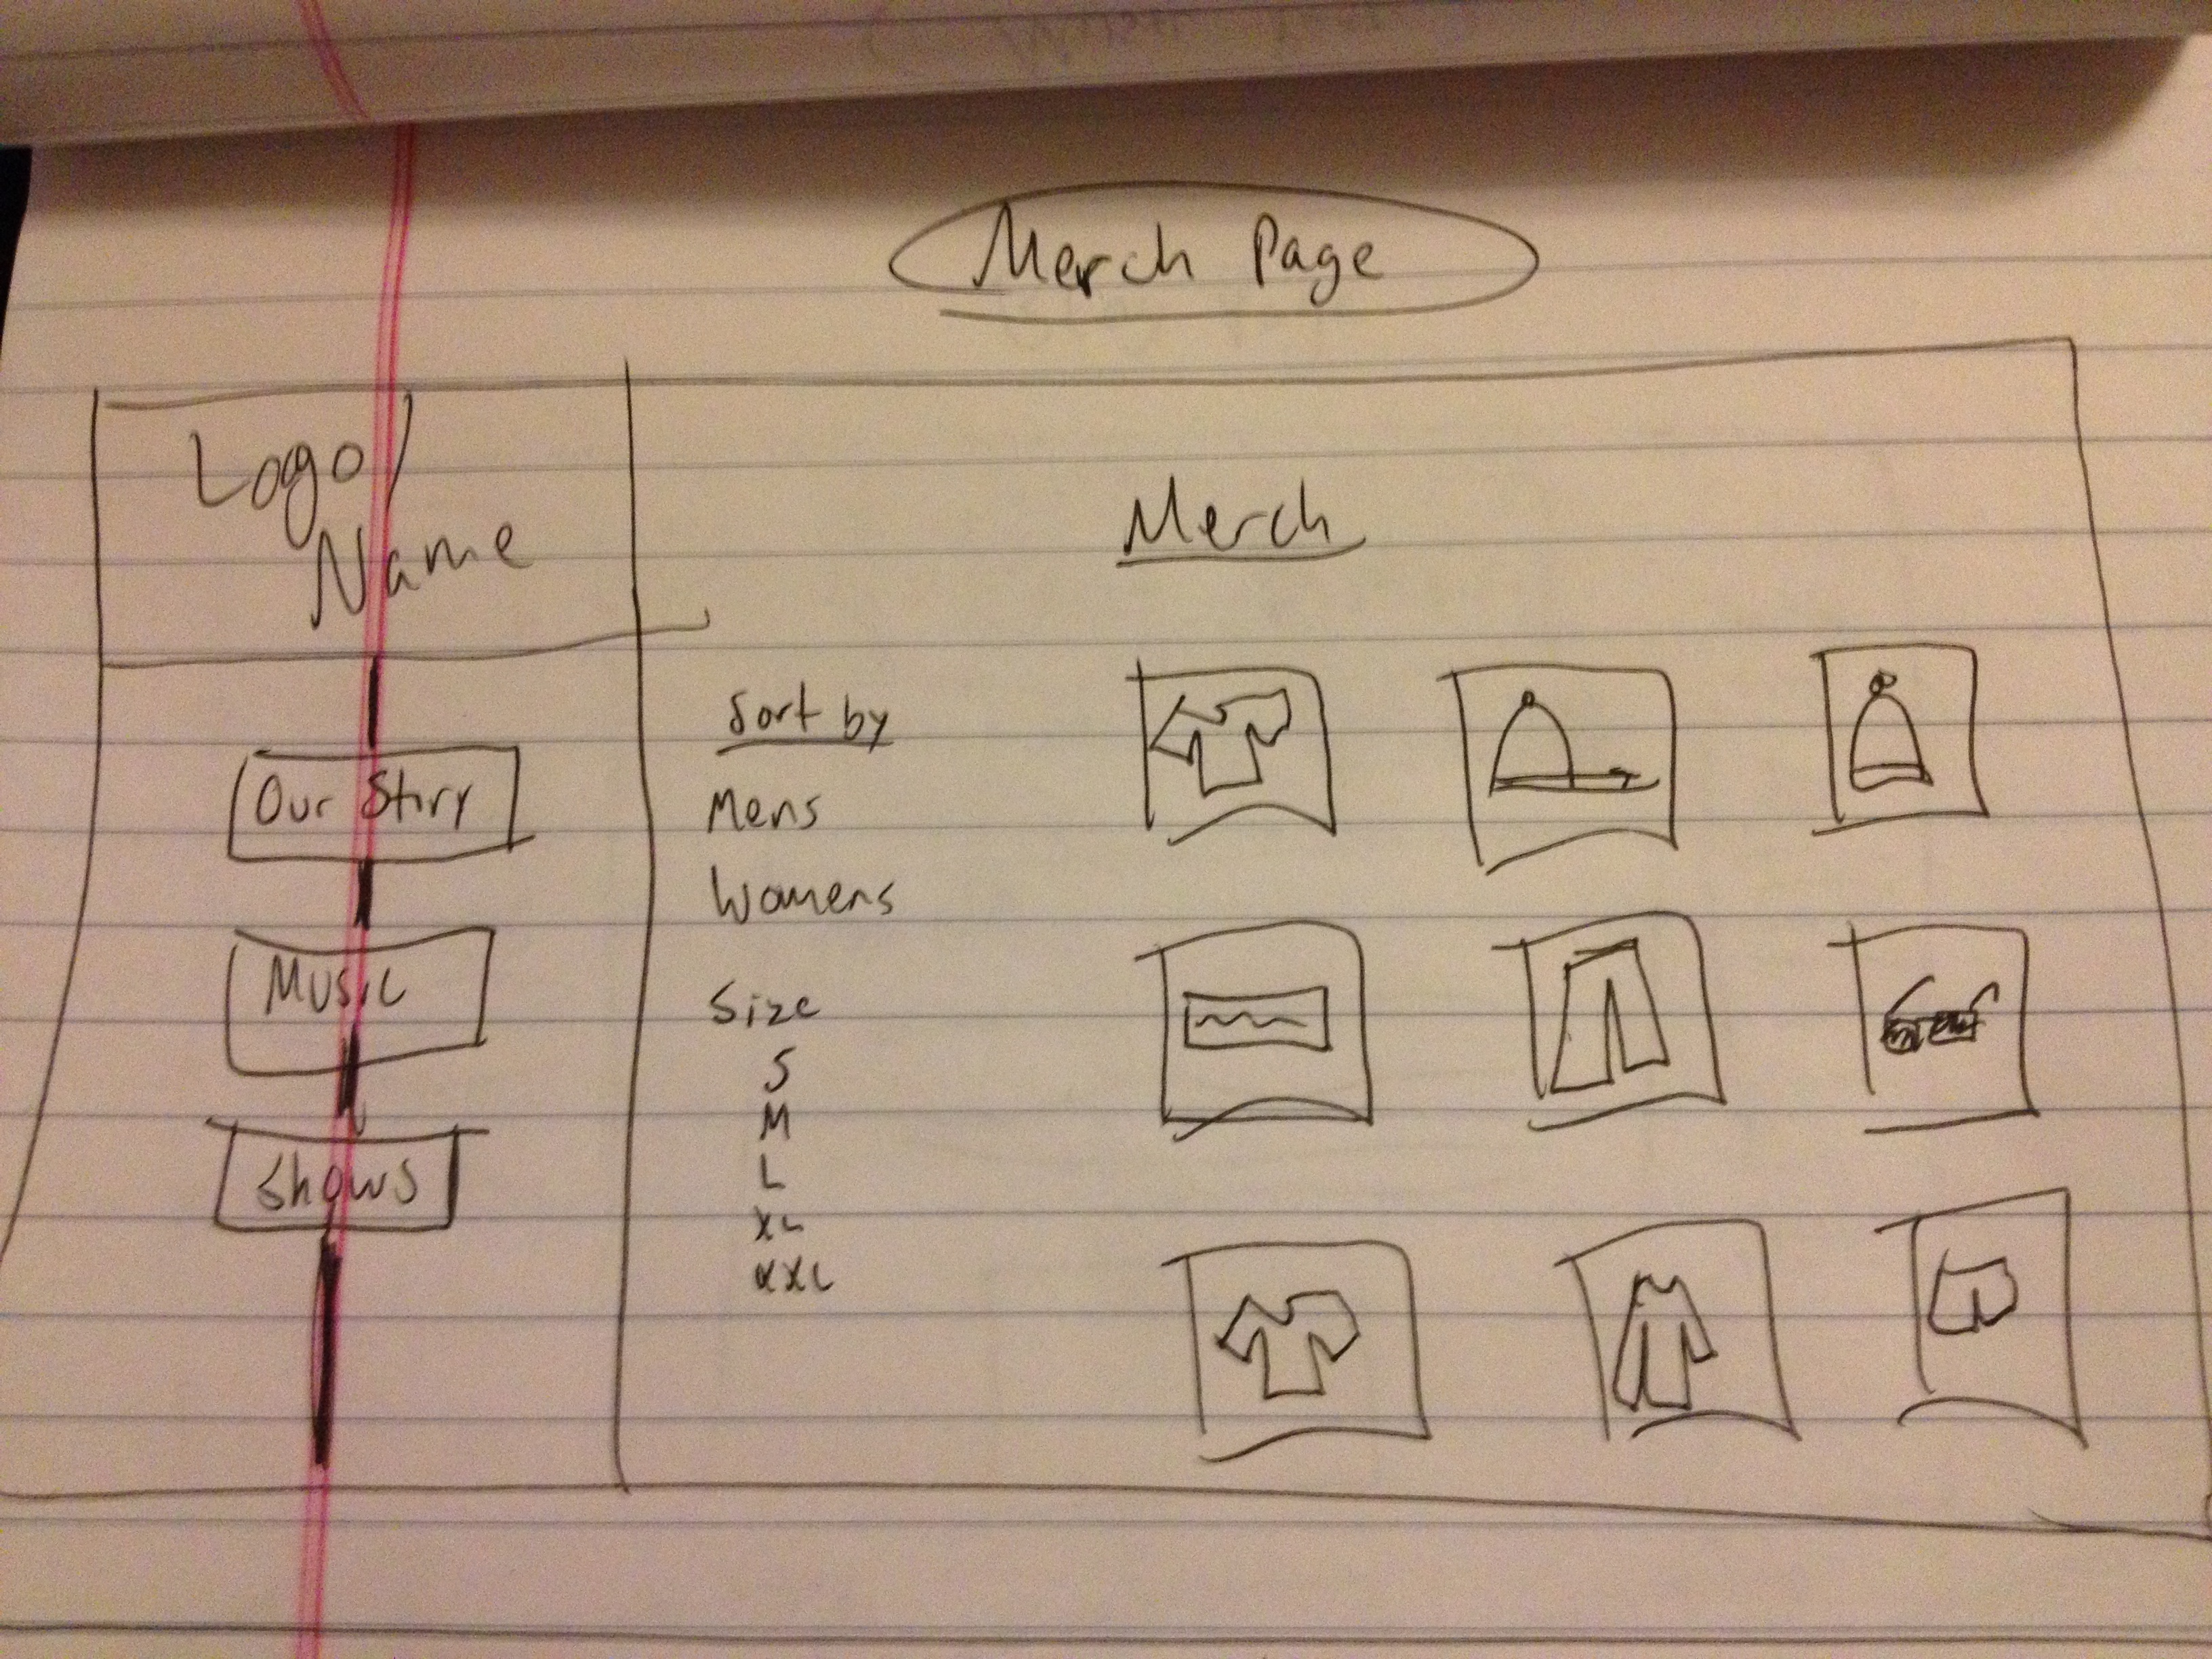 Merch Page
Logo/
Name
Our Story
Music
Shows
Merch
Sort by
Mens
Womens
Size
S
M
L
XL
XXL